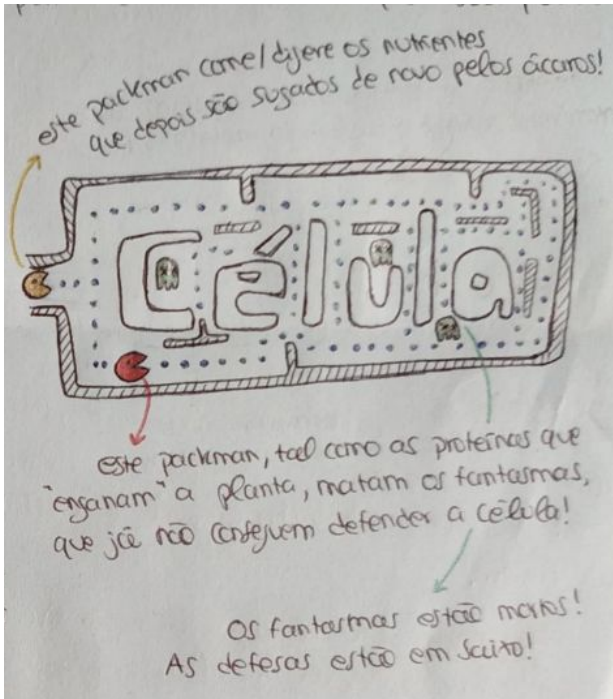 este packman come/dijere os nutrientes
que depois são sugados de novo pelos ácaros!
Célula
este packman, tal como as proteínas que
"enganam" a planta, matam os fantasmas,
que já não conseguem defender a célula!
Os fantasmas estão mortos!
As defesas estão em baixo!